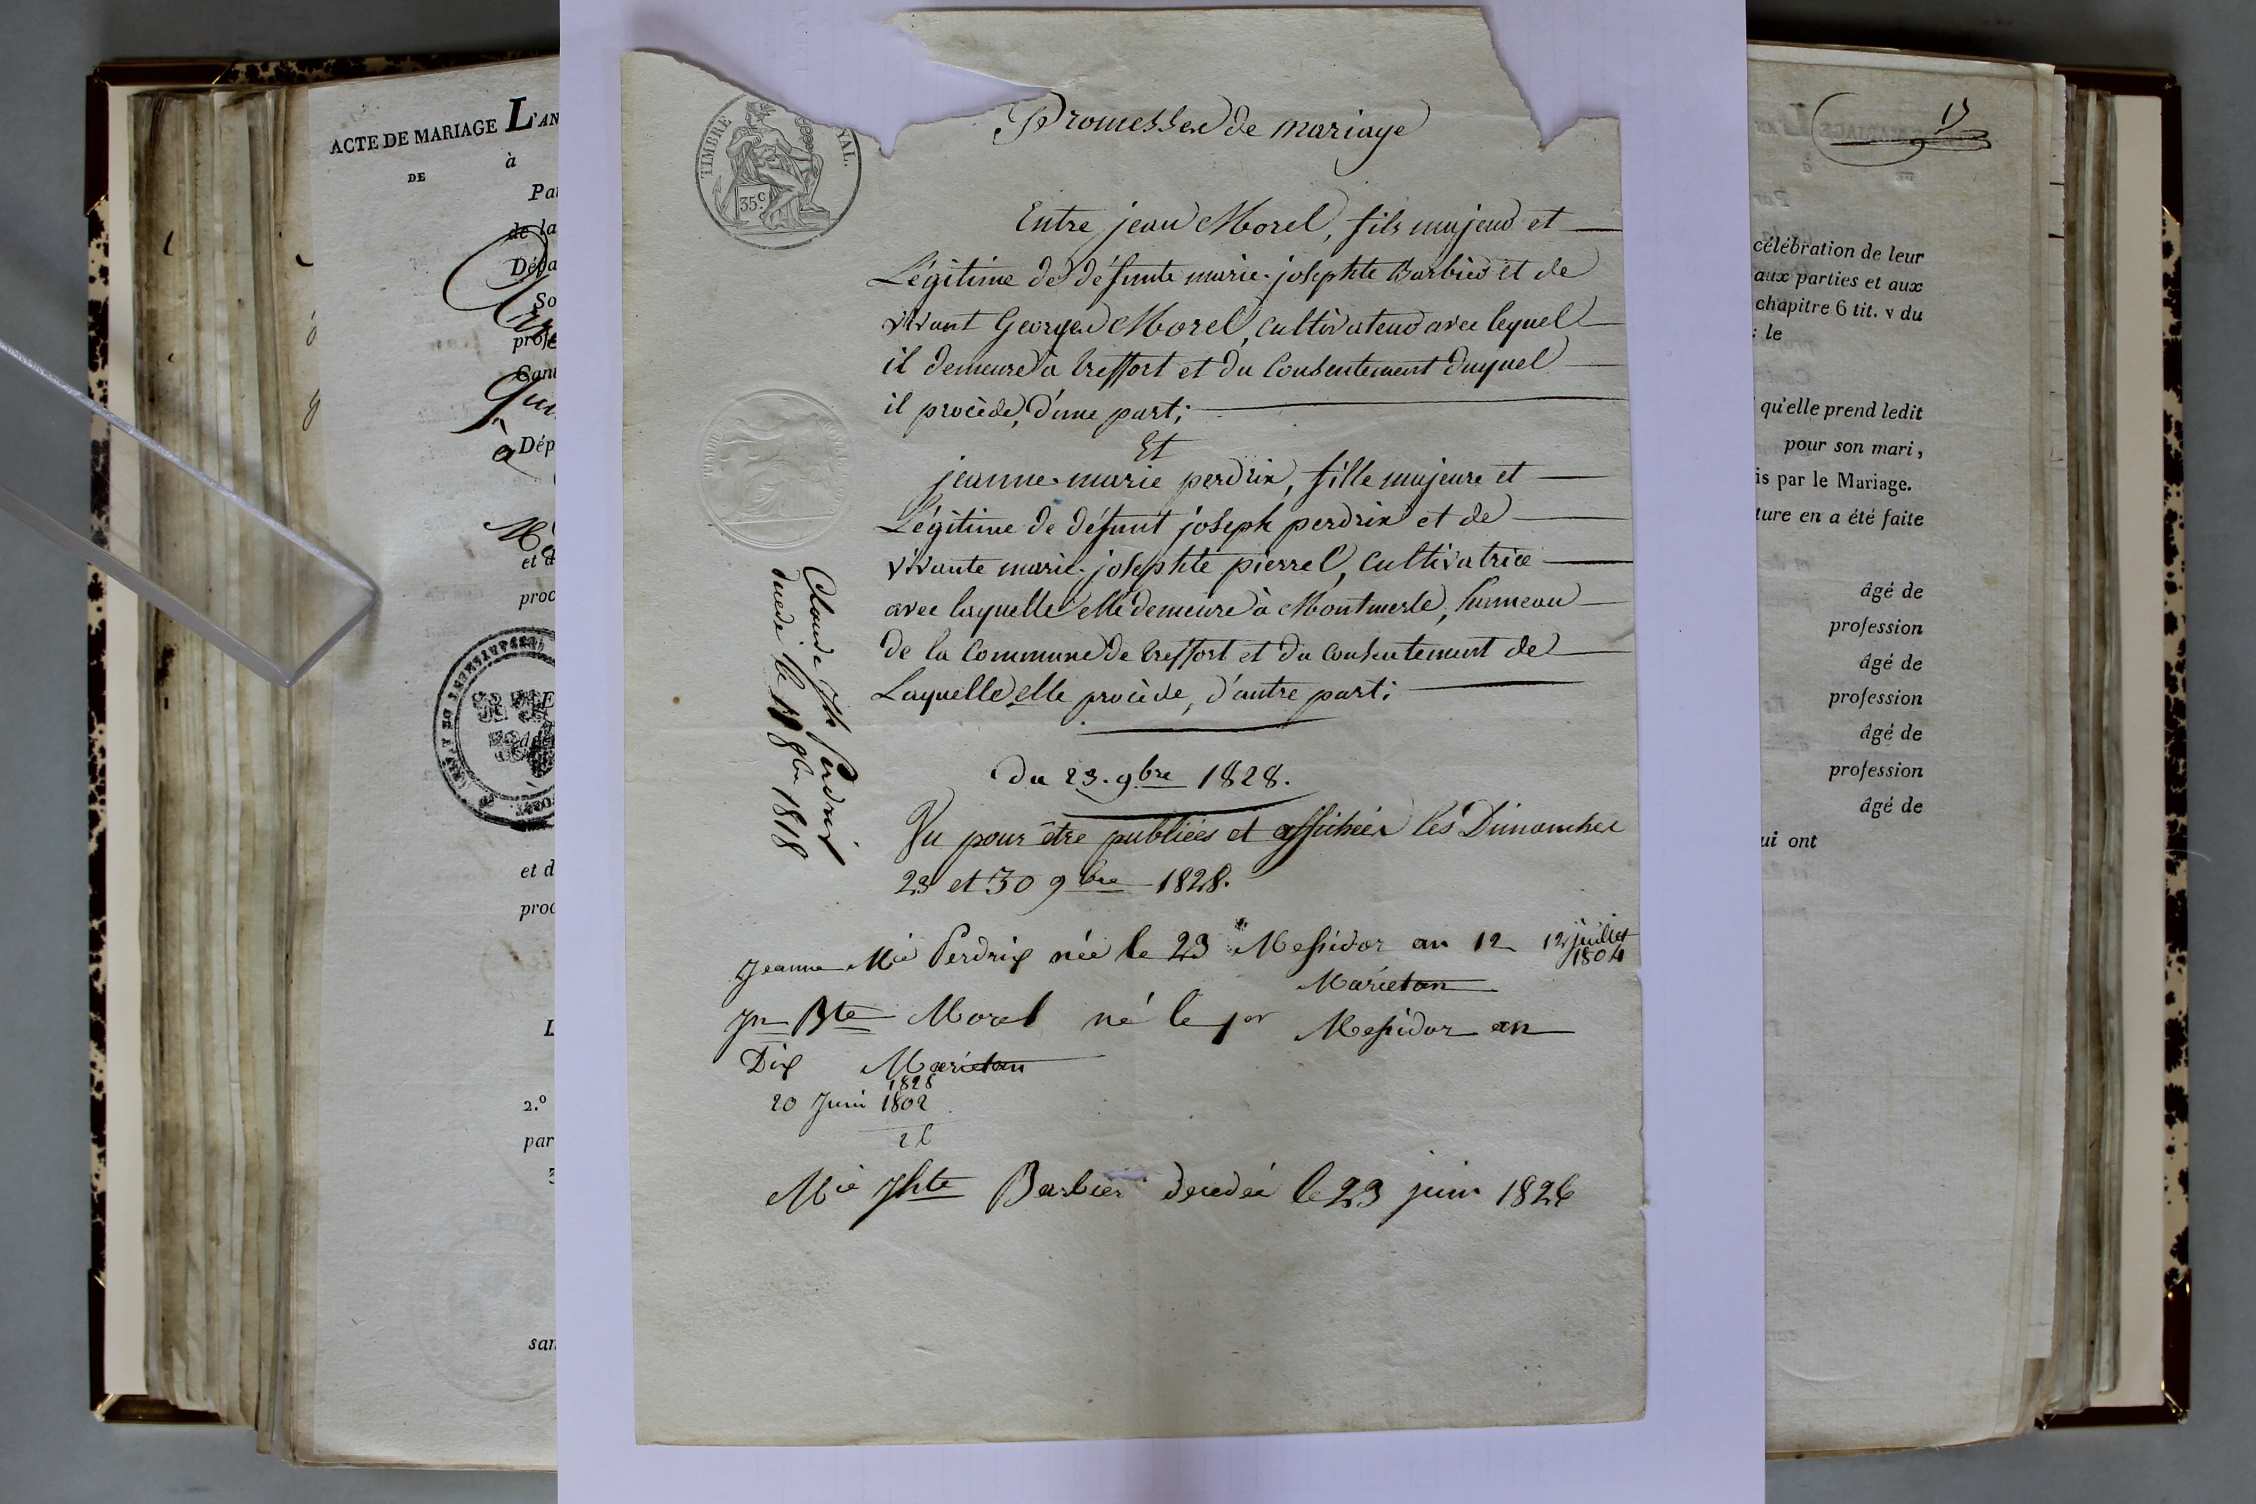 ACTE DE MARIAGE L'AN
à
DE
Pa
de la
Dépa
So
profe
Cant
Qui
à Dép
et d
proc
et d
proc
L
2.º
par
3
san
TIMBRE
NAL.
35 c.
Promesses de mariage
Entre jean Morel, fils majeur et
Légitime de défunte marie-josephte Barbier et de
vivant Georges Morel, cultivateur avec lequel
il demeure à treffort et du Consentement duquel
il procède, d'une part;
Et
jeanne-marie perdrix, fille majeure et
Légitime de défunt joseph perdrix et de
vivante marie-josephte pierrel, cultivatrice
avec laquelle elle demeure à Montmerle, hameau
de la Commune de treffort et du consentement de
Laquelle elle procède, d'autre part;
Claude Jh Perdrix
décédé le 19 8bre 1818
du 23. 9bre 1828.
Vu pour être publiées et affichées les Dimanches
23 et 30 9bre 1828.
Jeanne Mie Perdrix née le 23 Messidor an 12 12 juillet
1804
Marietan
Jn Bte Morel né le 1er Messidor an
Dix Marietan
1828
20 Juin 1802
26
Mie Jhte Barbier décédée le 23 juin 1826
13
célébration de leur
aux parties et aux
chapitre 6 tit. v du
: le
qu'elle prend ledit
pour son mari,
is par le Mariage.
ture en a été faite
âgé de
profession
âgé de
profession
âgé de
profession
âgé de
ui ont